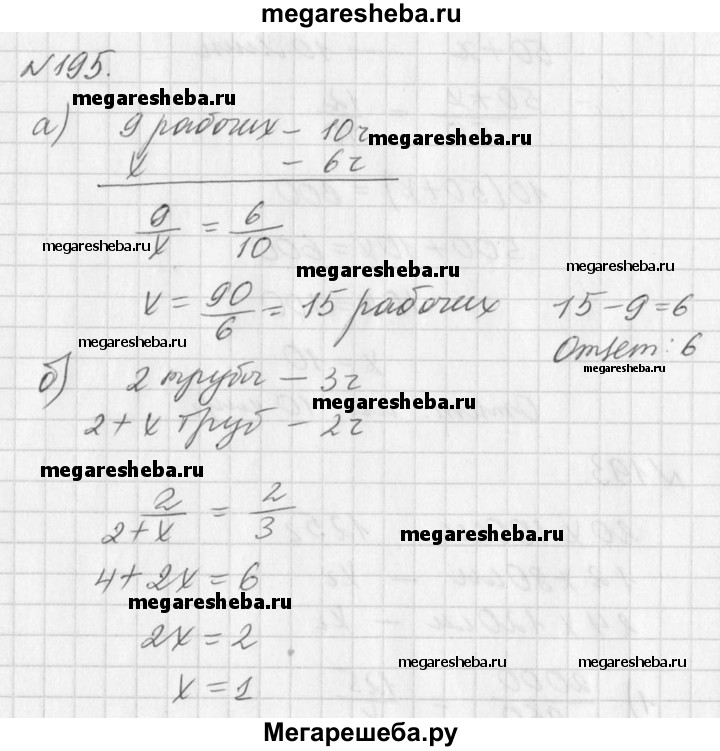 megaresheba.ru
№195.
megaresheba.ru
а) 9 рабочих – 10ч
megaresheba.ru
x – 6ч
9/x = 6/10
megaresheba.ru
megaresheba.ru
megaresheba.ru
x = 90/6 = 15 рабочих 15-9=6
megaresheba.ru
Ответ: 6
megaresheba.ru
б) 2 трубы – 3ч
megaresheba.ru
2+x труб – 2ч
megaresheba.ru
2/2+x = 2/3
megaresheba.ru
4+2x=6
megaresheba.ru
2x=2
megaresheba.ru
megaresheba.ru
x=1
Мегарешеба.ру